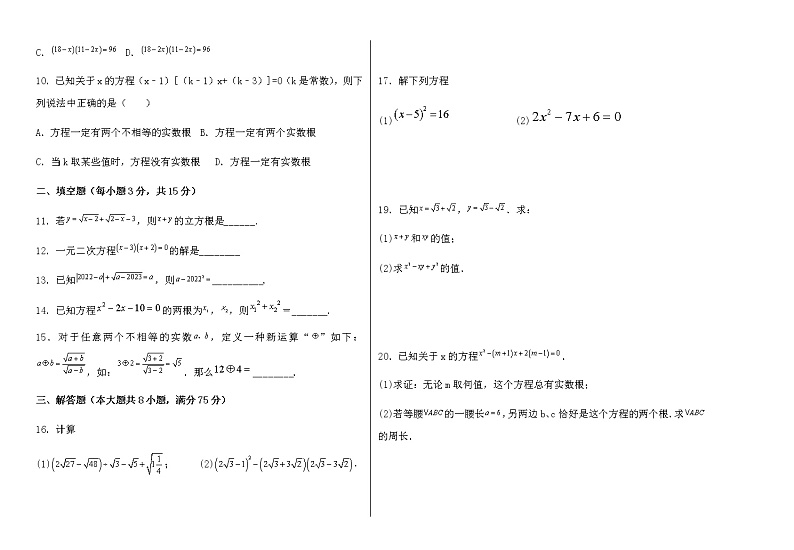 C. (18-x)(11-2x)=96 D. (18-2x)(11-2x)=96
10. 已知关于x的方程（x﹣1）[（k﹣1）x+（k﹣3）]=0（k是常数），则下
列说法中正确的是（　　）
A．方程一定有两个不相等的实数根 B．方程一定有两个实数根
C．当k取某些值时，方程没有实数根 D．方程一定有实数根
二、填空题（每小题3分，共15分）
11. 若y=√(x-2)+√(2-x)-3，则x+y的立方根是______.
12. 一元二次方程(x-3)(x+2)=0的解是________
13. 已知|2022-a|+√(a-2023)=a，则a-2022²=__________.
14. 已知方程x²-2x-10=0的两根为x₁，x₂，则x₁²+x₂²=_______.
15．对于任意两个不相等的实数a，b，定义一种新运算“⊕”如下：
a⊕b=√(a+b)/√(a-b)，如：3⊕2=√(3+2)/√(3-2)=√5．那么12⊕4=________.
三、解答题（本大题共8小题，满分75分）
16. 计算
(1)(2√27-√48)÷√3-√5+√(1 1/4)； (2)(2√3-1)²-(2√3+3√2)(2√3-3√2)．
17．解下列方程
(1)(x-5)²=16 (2)2x²-7x+6=0
19．已知x=√3+√2，y=√3-√2．求：
(1)x+y和xy的值；
(2)求x²-xy+y²的值．
20．已知关于x的方程x²-(m+1)x+2(m-1)=0．
(1)求证：无论m取何值，这个方程总有实数根；
(2)若等腰▽ABC的一腰长a=6，另两边b、c恰好是这个方程的两个根．求▽ABC
的周长．